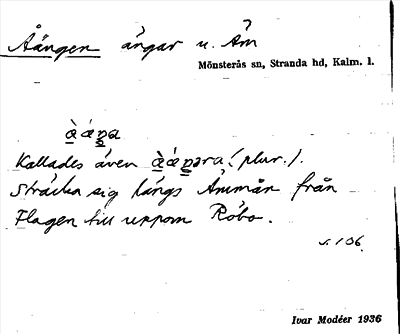 Åängen ängar u. Åm
Mönsterås sn, Stranda hd, Kalm. l.
Kallades även (plur.).
Sträcka sig längs Åmmån från
Flagen till uppom Råbo.
s. 106.
Ivar Modéer 1936